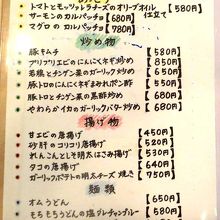 トマトとモッツァレラチーズのオリーブオイル【580円】
仕立て
サーモンのカルパッチョ【680円】
マグロのカルパッチョ【680円】
炒め物
豚キムチ【580円】
プリプリエビのにんにくネギ炒め【850円】
若鶏とチンゲン菜のガーリック炒め【550円】
豚トロとチンゲン菜のにんにくポン酢炒め【550円】
豚トロとチンゲン菜の黒酢炒め【680円】
やわらかイカのガーリックバター炒め【680円】
揚げ物
甘エビの唐揚げ【450円】
砂肝のコリコリ唐揚げ【530円】
れんこんとしそ明太はさみ揚げ【530円】
タコの唐揚げ【530円】
ガーリックポテトの明太チーズ焼き【750円】
麺類
オムうどん【650円】
もちもちうどんの塩ダレチャンプルー【580円】